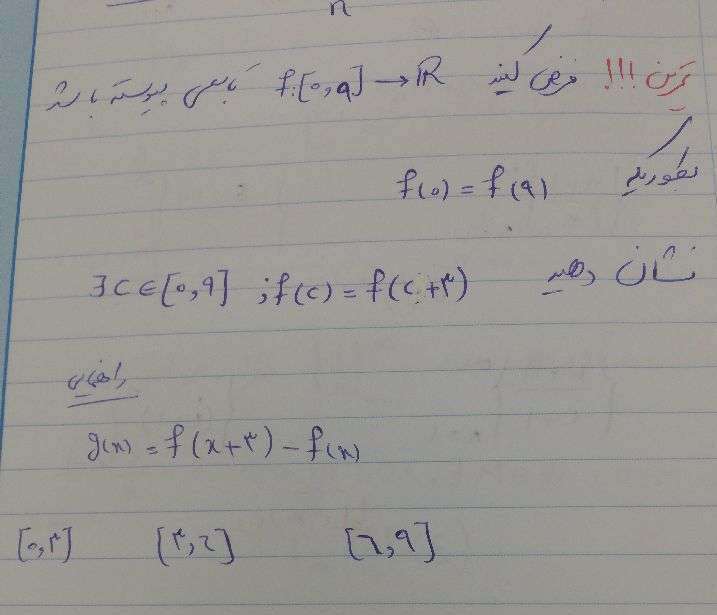 n
تمرین !!! فرض کنید f:[۰,۹] → ℝ تابعی پیوسته باشد
بطوریکه f(۰) = f(۹)
نشان دهید ∃c∈[۰,۹] ; f(c) = f(c+۳)
راهنمایی
g(x) = f(x+۳) − f(x)
[۰,۳] [۳,۶] [۶,۹]